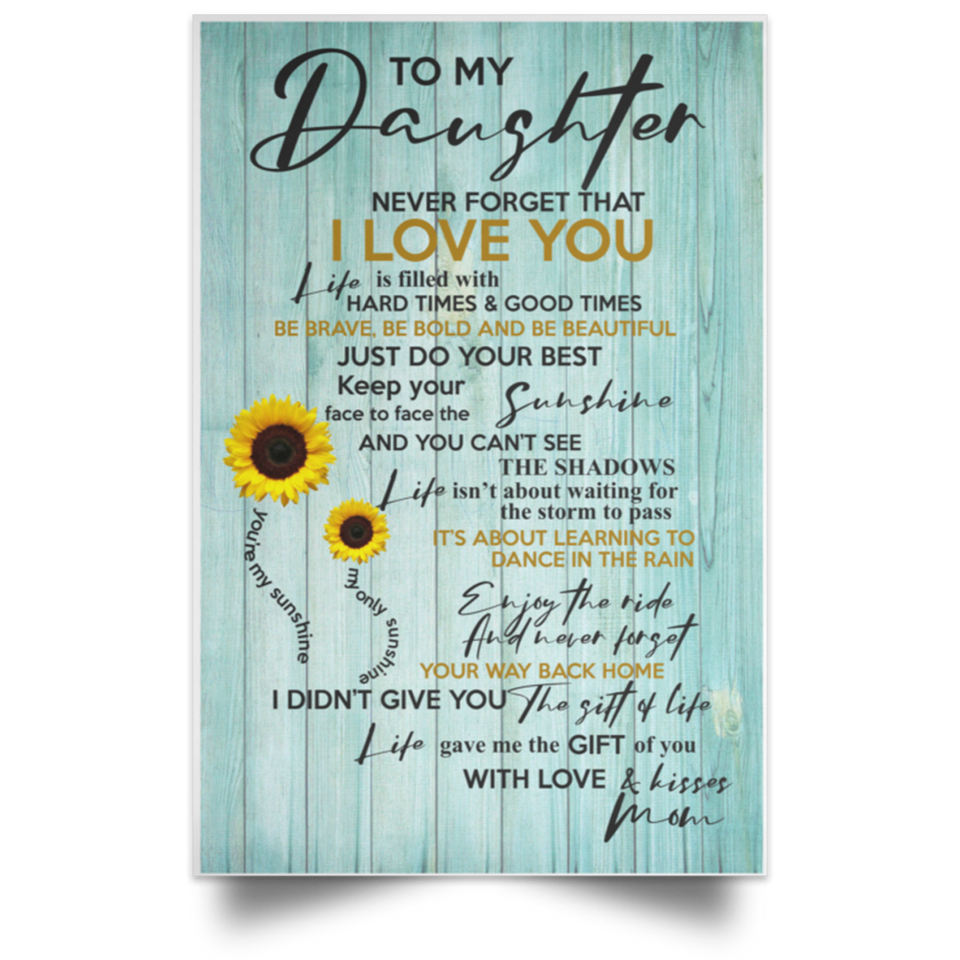 TO MY
Daughter
NEVER FORGET THAT
I LOVE YOU
Life is filled with
HARD TIMES & GOOD TIMES
BE BRAVE, BE BOLD AND BE BEAUTIFUL
JUST DO YOUR BEST
Keep your
face to face the Sunshine
AND YOU CAN'T SEE
THE SHADOWS
Life isn't about waiting for
the storm to pass
IT'S ABOUT LEARNING TO
DANCE IN THE RAIN
you're my sunshine
my only sunshine
Enjoy the ride
And never forget
YOUR WAY BACK HOME
I DIDN'T GIVE YOU The gift of life
Life gave me the GIFT of you
WITH LOVE & kisses
Mom